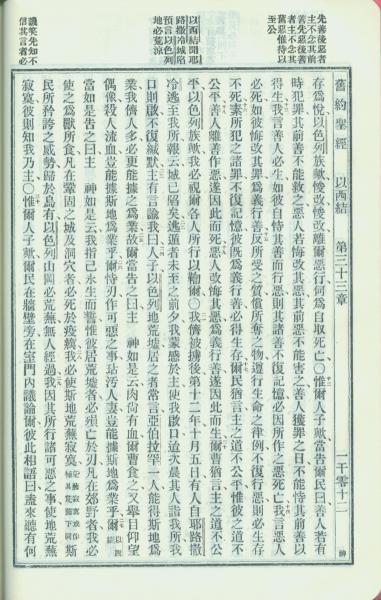 先善後惡者
主不念其前
善先惡後善
者主不念其
舊惡惟待以
至公
以西結聞耶
路撒冷城陷
預言以色列
地必荒涼
譏笑先知不
信其言者必
舊約聖經 以西結 第三十三章 一千零十二
存爲悅以色列族歟當改悛改悛離爾惡行何爲自取死亡○惟爾人子歟當告爾民曰善人若有
時犯罪其前善不能救之惡人若悔改其惡其前惡不能害之善人獲罪之日不能恃其前善以
得生我言善人必生如彼自恃其善而行惡則其諸善不復記憶必因所作之惡死亡我言惡人
必死如彼悔改其罪爲義行善反所受之質償所奪之物遵行生命之律例不復行惡則必生存
不死素所犯之諸罪不復記憶彼既爲義行善必得生存爾民猶言主之道不公平惟彼之道不
公平善人離善作惡遂因此而死惡人改悔其惡爲義行善遂因此而生爾曹猶言主之道不公
平以色列族歟我必視爾各人所行以鞫爾○我儕被擄後第十二年十月五日有人自耶路撒
冷逃至我所報云城已陷矣逃遁者未至之前夕我蒙感於主使我啟口迨次晨其人詣我所我
口則啟不復緘默主有言諭我曰人子以色列地荒墟居之者常言亞伯拉罕一人能得斯地爲
業我儕人多必更能據之爲業故爾當告之曰主神如是云肉尚有血爾曹食之又舉目仰望
偶像殺人流血豈能據斯地爲業乎爾恃刀作可惡之事玷污人妻豈能據斯地爲業乎
當如是告之曰主神如是云我指己永生而誓惟彼居荒墟者必殞亡於刃凡在郊野者我必
使之爲獸所食凡在鞏固之城及洞穴者必死於疫癘我必使斯地荒蕪寂寞
民所矜誇之威勢歸於烏有以色列山岡必荒蕪無人經過我因其所行諸可惡之事使地荒蕪
寂寞彼則知我乃主○惟爾人子歟爾民在牆壁旁在室門內議論爾彼此相語曰盍來聽有何